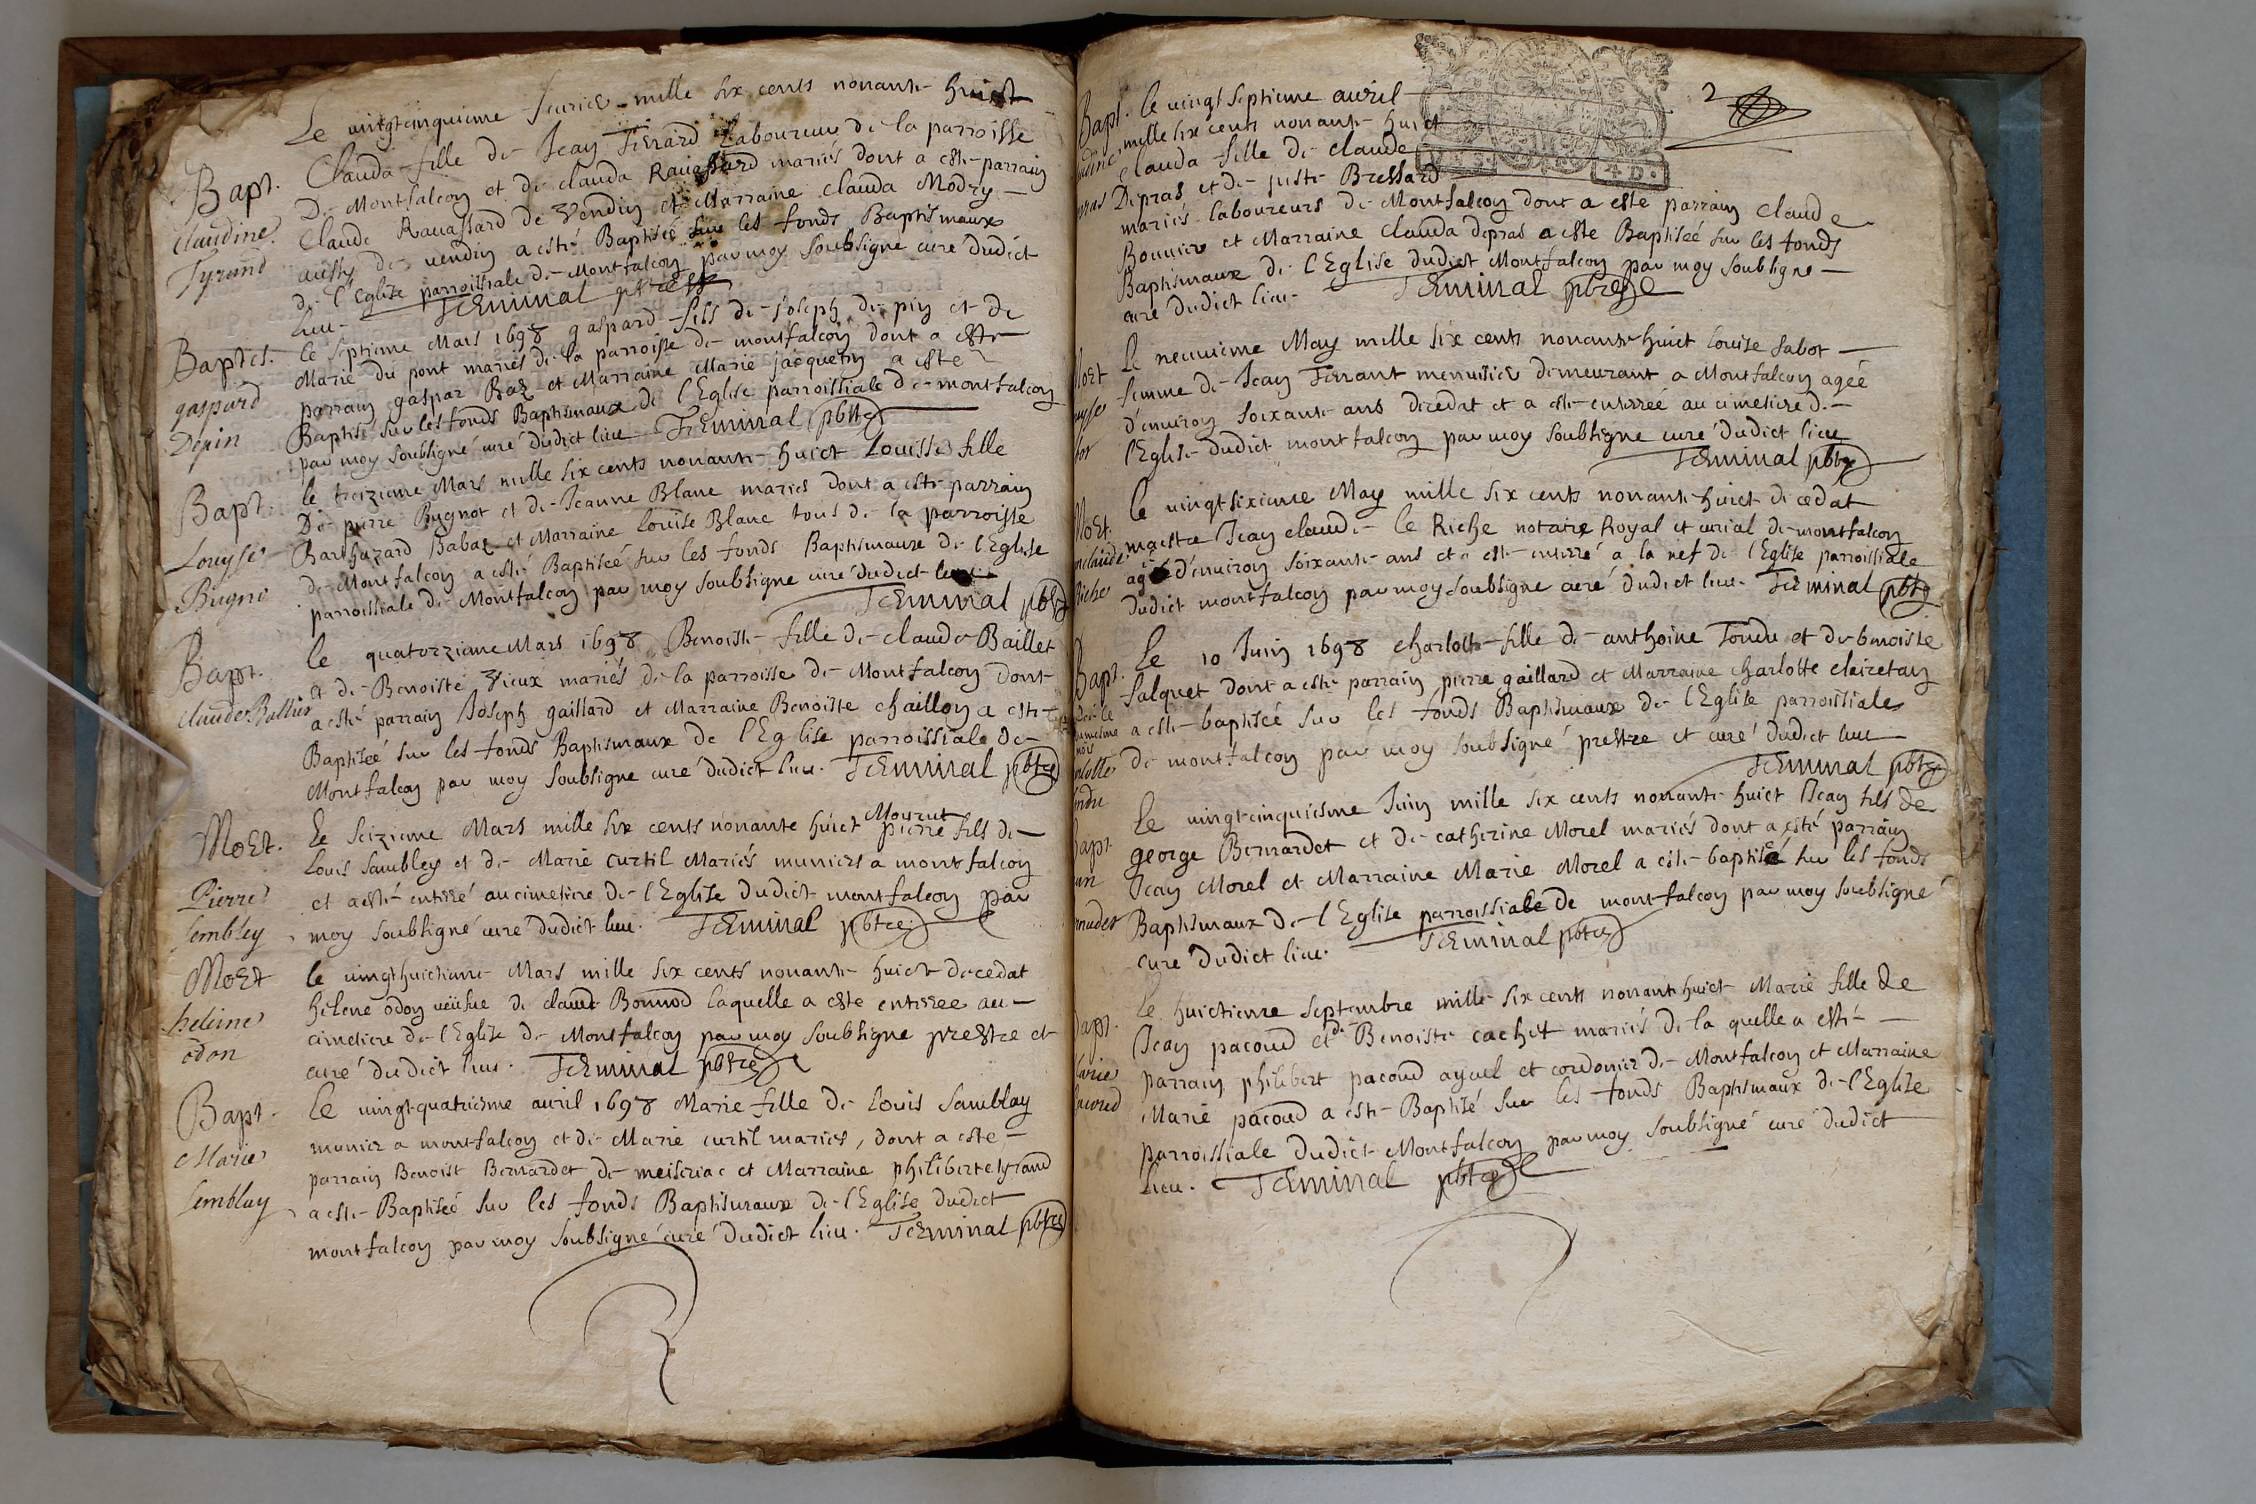 Le vingtcinquieme feurier mille six cents nonante huict
Clauda fille de Jean Tirard Laboureur de la parroisse
De Montfalcon et de clauda Rauassard mariés dont a esté parrain
Claude Rauassard de Vendin et Marraine clauda Modry
aussy de vendin a esté Baptisée sur les fonds Baptismaux
de l'Eglise parroissiale de Montfalcon par moy soubsigné curé dudict
lieu. Terminal pbtre
Bapt.
claudine
Tyrand
le septieme Mars 1698 gaspard fils de joseph de pin et de
Marie du pont mariés de la parroisse de montfalcon dont a esté
parrain gaspar Baz et Marraine Marie jacquetin a esté
Baptisé sur les fonds Baptismaux de l'Eglise parroissiale de montfalcon
par moy soubsigné curé dudict lieu Terminal pbtre
Baptes.
gaspard
Depin
le treizieme Mars mille six cents nonante huict Louisse fille
De pierre Bugnot et de Jeanne Blanc mariés dont a esté parrain
Barthazard Babaz et Marraine Louise Blanc tous de la parroisse
de Montfalcon a esté Baptisée sur les fonds Baptismaux de l'Eglise
parroissiale de Montfalcon par moy soubsigné curé dudict lieu
Terminal pbtre
Bapt.
Louysse
Bugno
le quatorzieme Mars 1698 Benoiste fille de claude Baillet
et de Benoiste Vieux mariés de la parroisse de Montfalcon dont
a esté parrain Joseph gaillard et Marraine Benoiste chaillon a esté
Baptisée sur les fonds Baptismaux de l'Eglise parroissiale de
Montfalcon par moy soubsigné curé dudict lieu. Terminal pbtre
Bapt.
claude Ballier
Le seizieme Mars mille six cents nonante huict Mourut pierre fils de
Louis Sambley et de Marie curtil Mariés muniers a montfalcon
et a esté enterré au cimetiere de l'Eglise dudict montfalcon par
moy soubsigné curé dudict lieu. Terminal pbtre
Mort.
Pierre
sembley
le vingthuictieme Mars mille six cents nonante huict decedat
helene odon veüfue de claude Bonnod laquelle a esté enterrée au
cimetiere de l'Eglise de Montfalcon par moy soubsigné prestre et
curé dudict lieu. Terminal pbtre
Mort
heleine
odon
Le vingtquatrieme auril 1698 Marie fille de Louis Samblay
munier a montfalcon et de Marie curtil mariés, dont a esté
parrain Benoist Bernardet de meiseriac et Marraine philiberte tyrand
a esté Baptisée sur les fonds Baptismaux de l'Eglise dudict
montfalcon par moy soubsigné curé dudict lieu. Terminal pbtre
Bapt.
Marie
semblay
2
4 D.
Bapt. le vingt septieme auril
mille six cents nonante huict
clauda fille de claude
Depras et de juste Bressard
mariés laboureurs de Montfalcon dont a esté parrain claude
Bouuier et Marraine clauda depras a esté Baptisée sur les fonds
Baptismaux de l'Eglise dudict Montfalcon par moy soubsigné
curé dudict lieu. Terminal pbtre
Le neuuieme May mille six cents nonante huict Louise sabot
femme de Jean Ferrant menuisier demeurant a Montfalcon agée
d'enuiron soixante ans decedat et a esté enterrée au cimetiere de
l'Eglise dudict montfalcon par moy soubsigné curé dudict lieu
Terminal pbtre
Mort
le vingtsixieme May mille six cents nonante huict decedat
maistre Jean claude le Riche notaire Royal et curial de montfalcon
agé d'enuiron soixante ans et a esté enterré a la nef de l'Eglise parroissiale
dudict montfalcon par moy soubsigné curé dudict lieu. Terminal pbtre
Mort.
Riche
Le 10 Juin 1698 charlotte fille de anthoine Tondu et de benoiste
salquet dont a esté parrain pierre gaillard et Marraine charlotte clairetan
a esté baptisée sur les fonds Baptismaux de l'Eglise parroissiale
de montfalcon par moy soubsigné prestre et curé dudict lieu
Terminal pbtre
Bapt.
Le vingtcinquiesme Juin mille six cents nonante huict Jean fils de
george Bernardet et de catherine Morel mariés dont a esté parrain
Jean Morel et Marraine Marie Morel a esté baptisé sur les fonds
Baptismaux de l'Eglise parroissiale de montfalcon par moy soubsigné
curé dudict lieu. Terminal pbtre
le huictieme septembre mille six cents nonante huict Marie fille de
Jean pacoud et de Benoiste cachet mariés de la quelle a esté
parrain philibert pacoud ayeul et cordonier de Montfalcon et Marraine
Marie pacoud a esté Baptisé sur les fonds Baptismaux de l'Eglise
parroissiale dudict Montfalcon par moy soubsigné curé dudict
lieu. Terminal pbtre